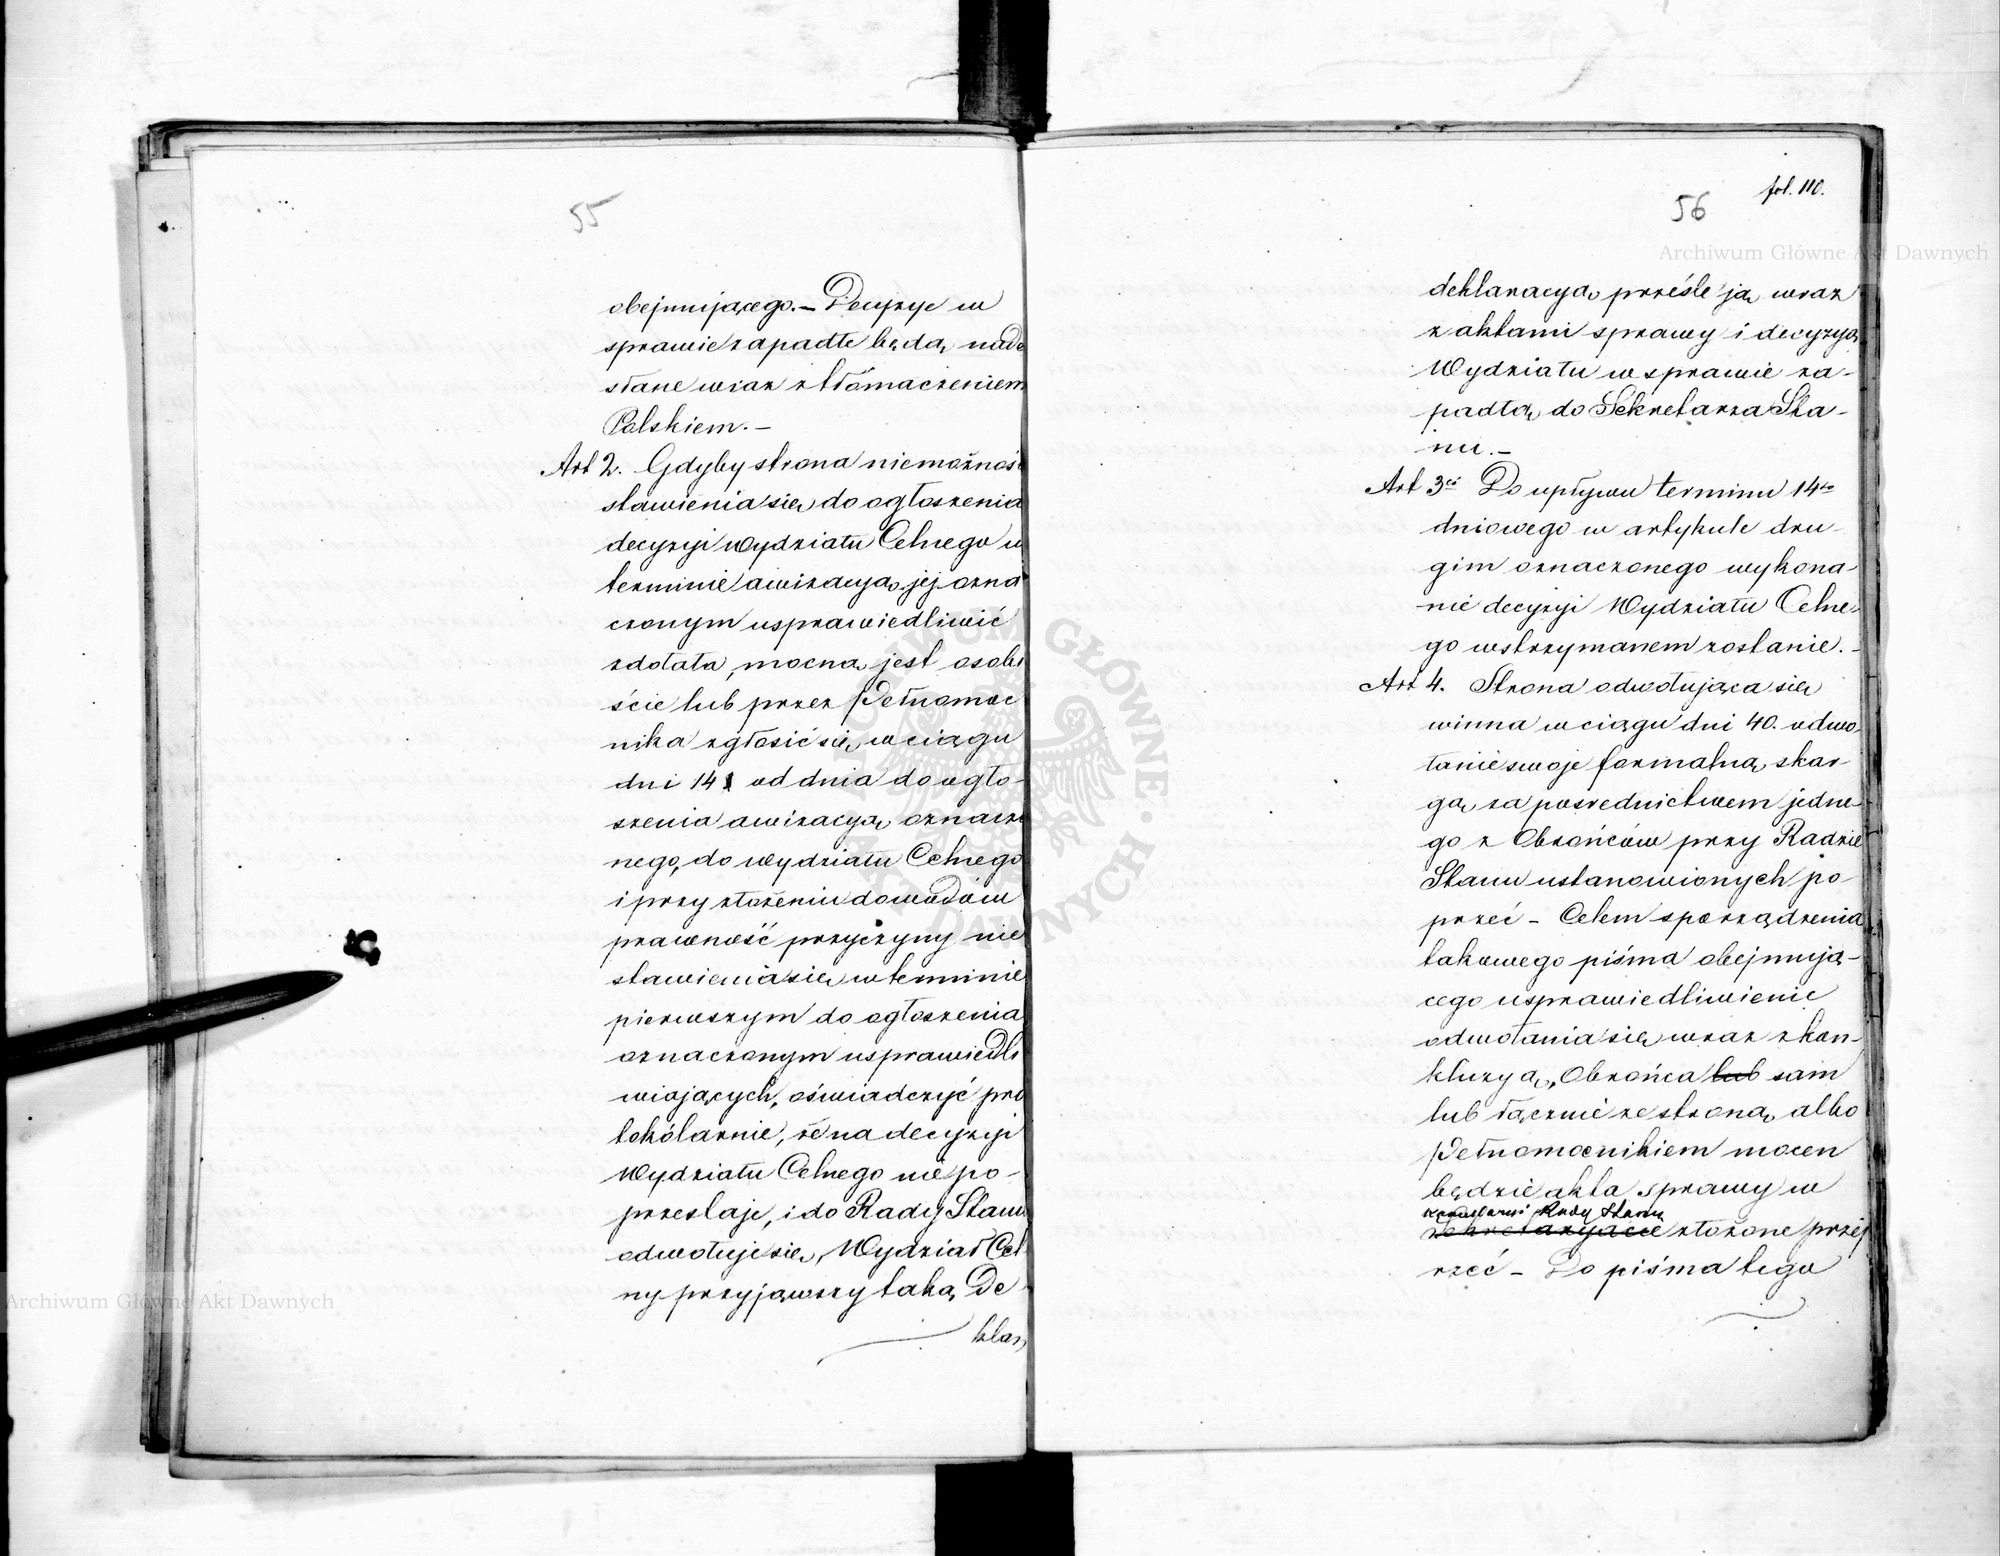 55
obejmującego. – Decyzye w
sprawie zapadłe będą nade
słane wraz z tłómaczeniem
Polskiem. –
Art 2. Gdyby strona niemożność
stawienia się do ogłoszenia
decyzyi Wydziału Celnego w
terminie awizacyą jej ozna
czonym usprawiedliwić
zdołała, mocną jest osobi
ście lub przez Pełnomoc
nika zgłosić się w ciągu
dni 14 od dnia do ogło-
szenia awizacyą oznaczo
nego, do Wydziału Celnego
i przy złożeniu dowodów
prawność przyczyny nie
stawienia się w terminie
pierwszym do ogłoszenia
oznaczonym usprawiedli
wiających, oświadczyć pro
tokólarnie, że na decyzyi
Wydziału Celnego nie po-
przestaje, i do Rady Stanu
odwołuje się, Wydział Cel
ny przyjąwszy taką De
klar,
fol. 110.
56
deklaracyą prześle ją wraz
z aktami sprawy i decyzyą
Wydziału w sprawie za-
padłą do Sekretarza Sta-
nu. –
Art 3ci Do upływu terminu 14to
dniowego w artykule dru-
gim oznaczonego wykona-
nie decyzyi Wydziału Celne-
go wstrzymanem zostanie. –
Art 4. Strona odwołująca się
winna w ciągu dni 40. odwo-
łanie swoje formalną skar-
gą za pośrednictwem jedne-
go z Obrońców przy Radzie
Stanu ustanowionych po-
przeć – Celem sporządzenia
takowego pisma obejmują-
cego usprawiedliwienie
odwołania się wraz z kon-
kluzyą, Obrońca lub sam
lub łącznie ze stroną albo
Pełnomocnikiem mocen
będzie akta sprawy w
kancelaryi Rady Stanu
Sekretaryacie złożone przej
rzeć – Do pisma tego
Archiwum Główne Akt Dawnych
Archiwum Główne Akt Dawnych
ARCHIWUM GŁÓWNE AKT DAWNYCH